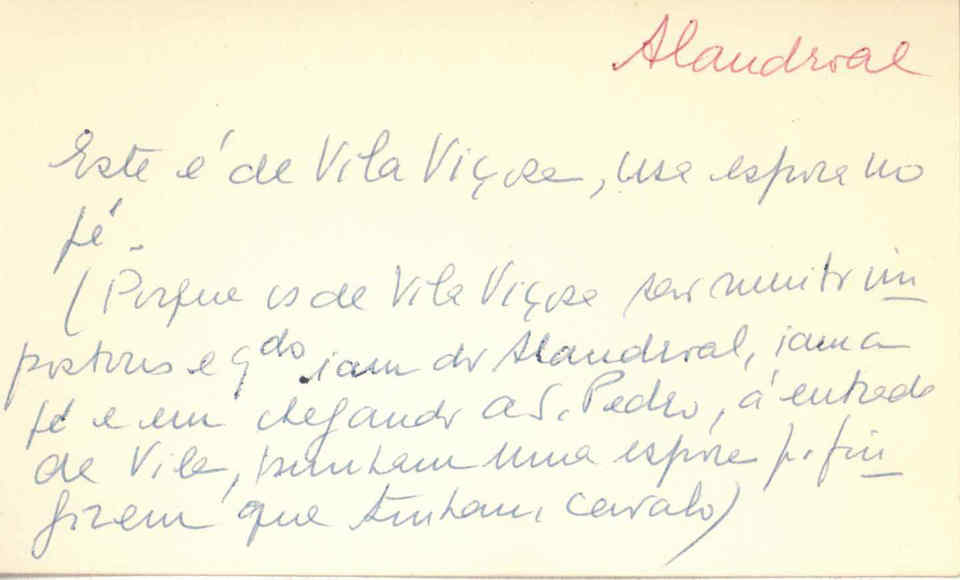 Alandroal
Este é de Vila Viçosa, usa espora no
pé.
(Porque os de Vila Viçosa são muito im
postores e qdo iam do Alandroal, iam a
pé e em chegando a S. Pedro, á entrada
da Vila, punham uma espora p. fin
girem que tinham cavalo)